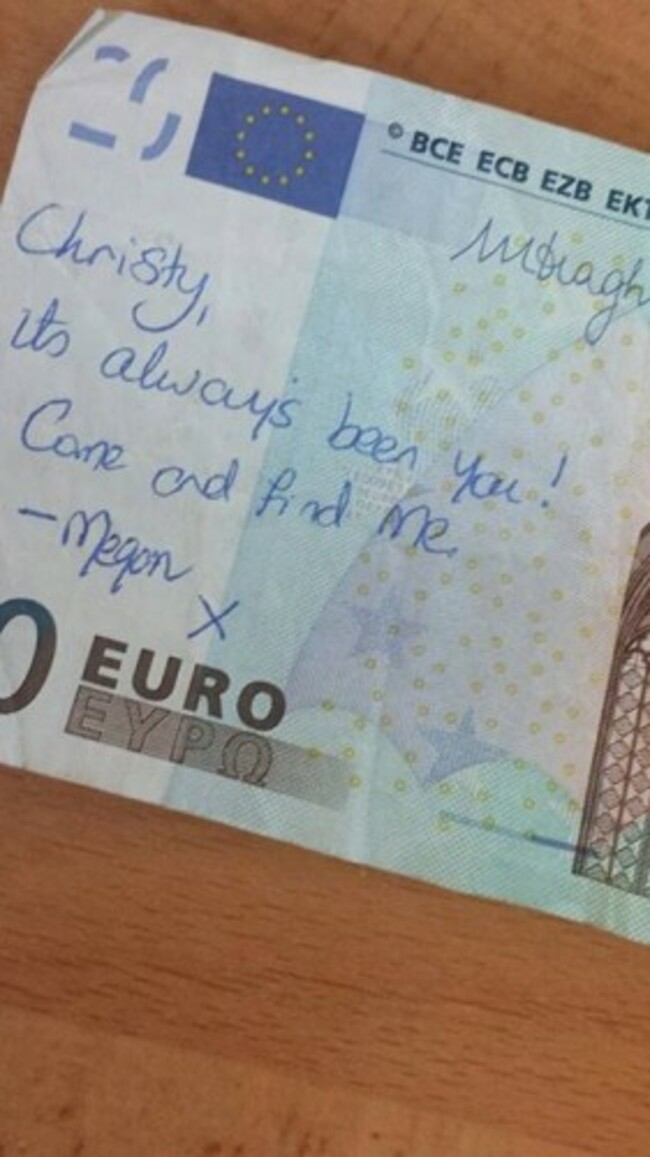 © BCE ECB EZB EKT
Christy,
its always been you!
Come and find me.
-Megan
X
0 EURO
ΕΥΡΩ